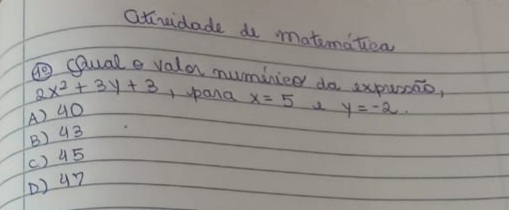 Atividade de Matemática
1º) Qual o valor numérico da expressão,
2x² + 3y + 3, para x = 5 e y = -2.
A) 40
B) 43
C) 45
D) 47